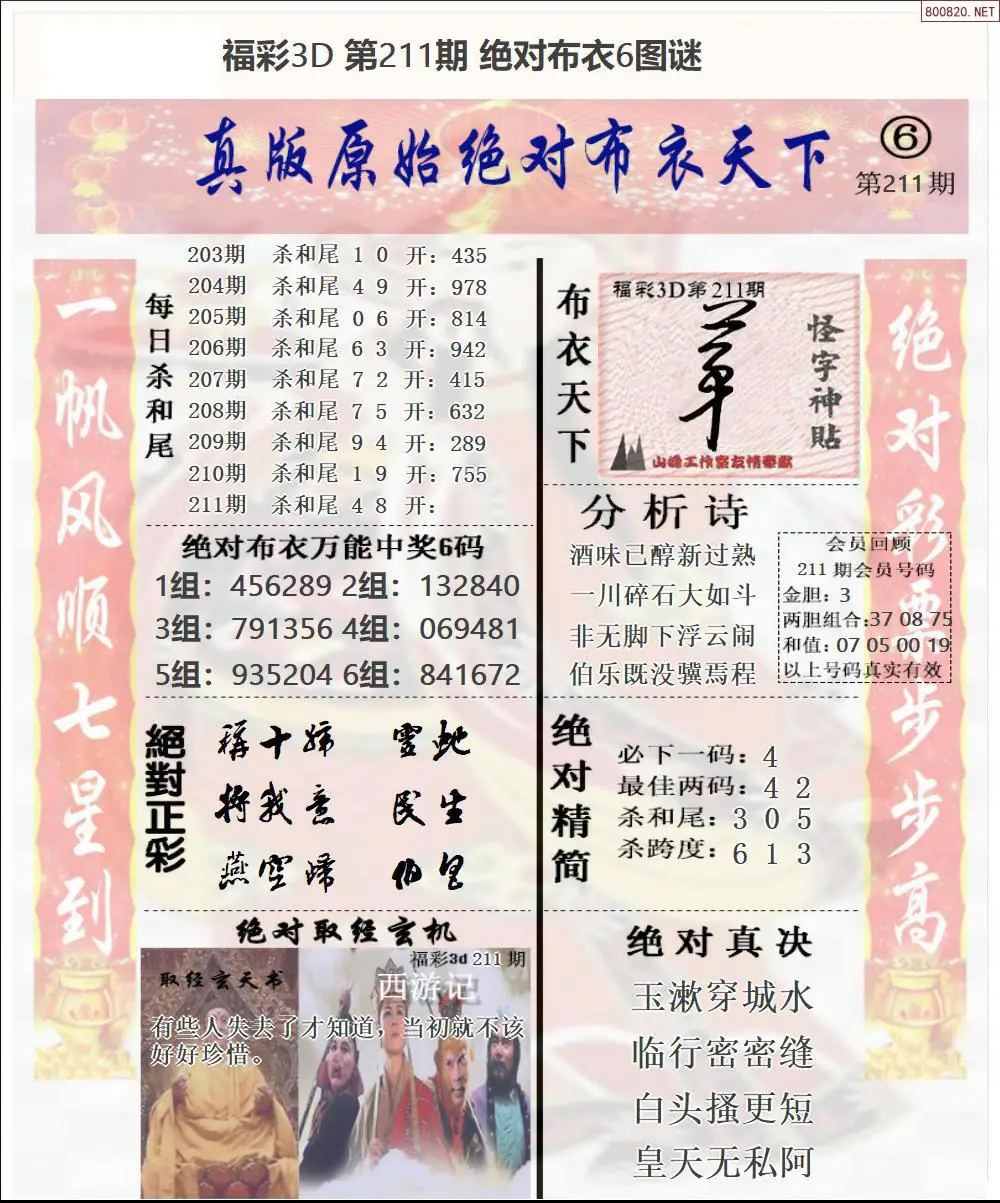 800820.NET
福彩3D 第211期 绝对布衣6图谜
真版原始绝对布衣天下
⑥
第211期
一帆风顺七星到
每日杀和尾
203期 杀和尾 1 0 开：435
204期 杀和尾 4 9 开：978
205期 杀和尾 0 6 开：814
206期 杀和尾 6 3 开：942
207期 杀和尾 7 2 开：415
208期 杀和尾 7 5 开：632
209期 杀和尾 9 4 开：289
210期 杀和尾 1 9 开：755
211期 杀和尾 4 8 开：
绝对布衣万能中奖6码
1组：456289 2组：132840
3组：791356 4组：069481
5组：935204 6组：841672
絕對正彩
民生
绝对取经玄机
福彩3d 211期
西游记
取经玄天书
有些人失去了才知道，当初就不该
好好珍惜。
布衣天下
福彩3D第211期
怪字神貼
山峰工作室友情奉献
分析诗
酒味已醇新过熟
一川碎石大如斗
非无脚下浮云闹
伯乐既没骥焉程
会员回顾
211期会员号码
金胆：3
两胆组合:37 08 75
和值：07 05 00 19
以上号码真实有效
绝对精简
必下一码：4
最佳两码：4 2
杀和尾：3 0 5
杀跨度：6 1 3
绝对真决
玉漱穿城水
临行密密缝
白头搔更短
皇天无私阿
绝对彩票步步高